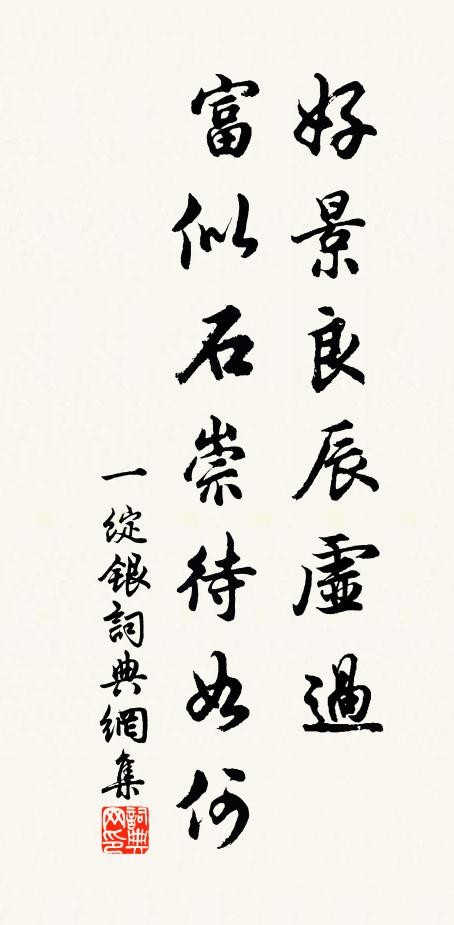 好景良辰虛過
富似石崇待如何
一綻銀詞典網集
詞典
网印